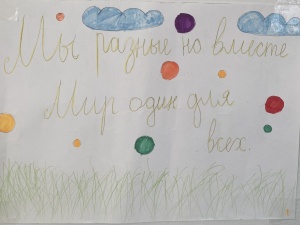 Мы разные но вместе
Мир один для
всех.